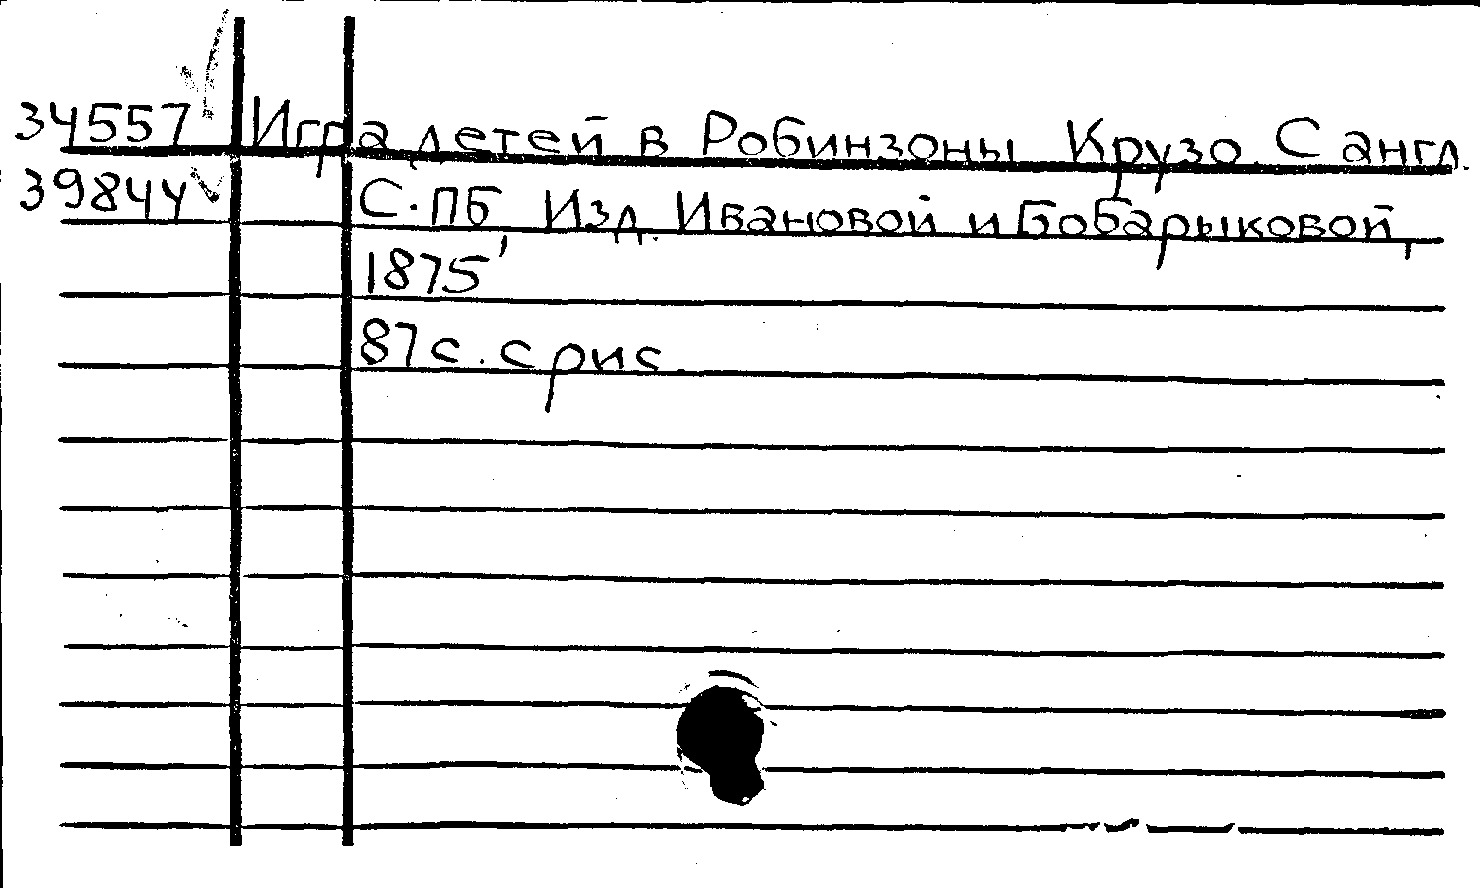 34557 Игра детей в Робинзоны Крузо. С англ.
39844 С.ПБ, Изд. Ивановой и Бобарыковой,
1875
87с. с рис.